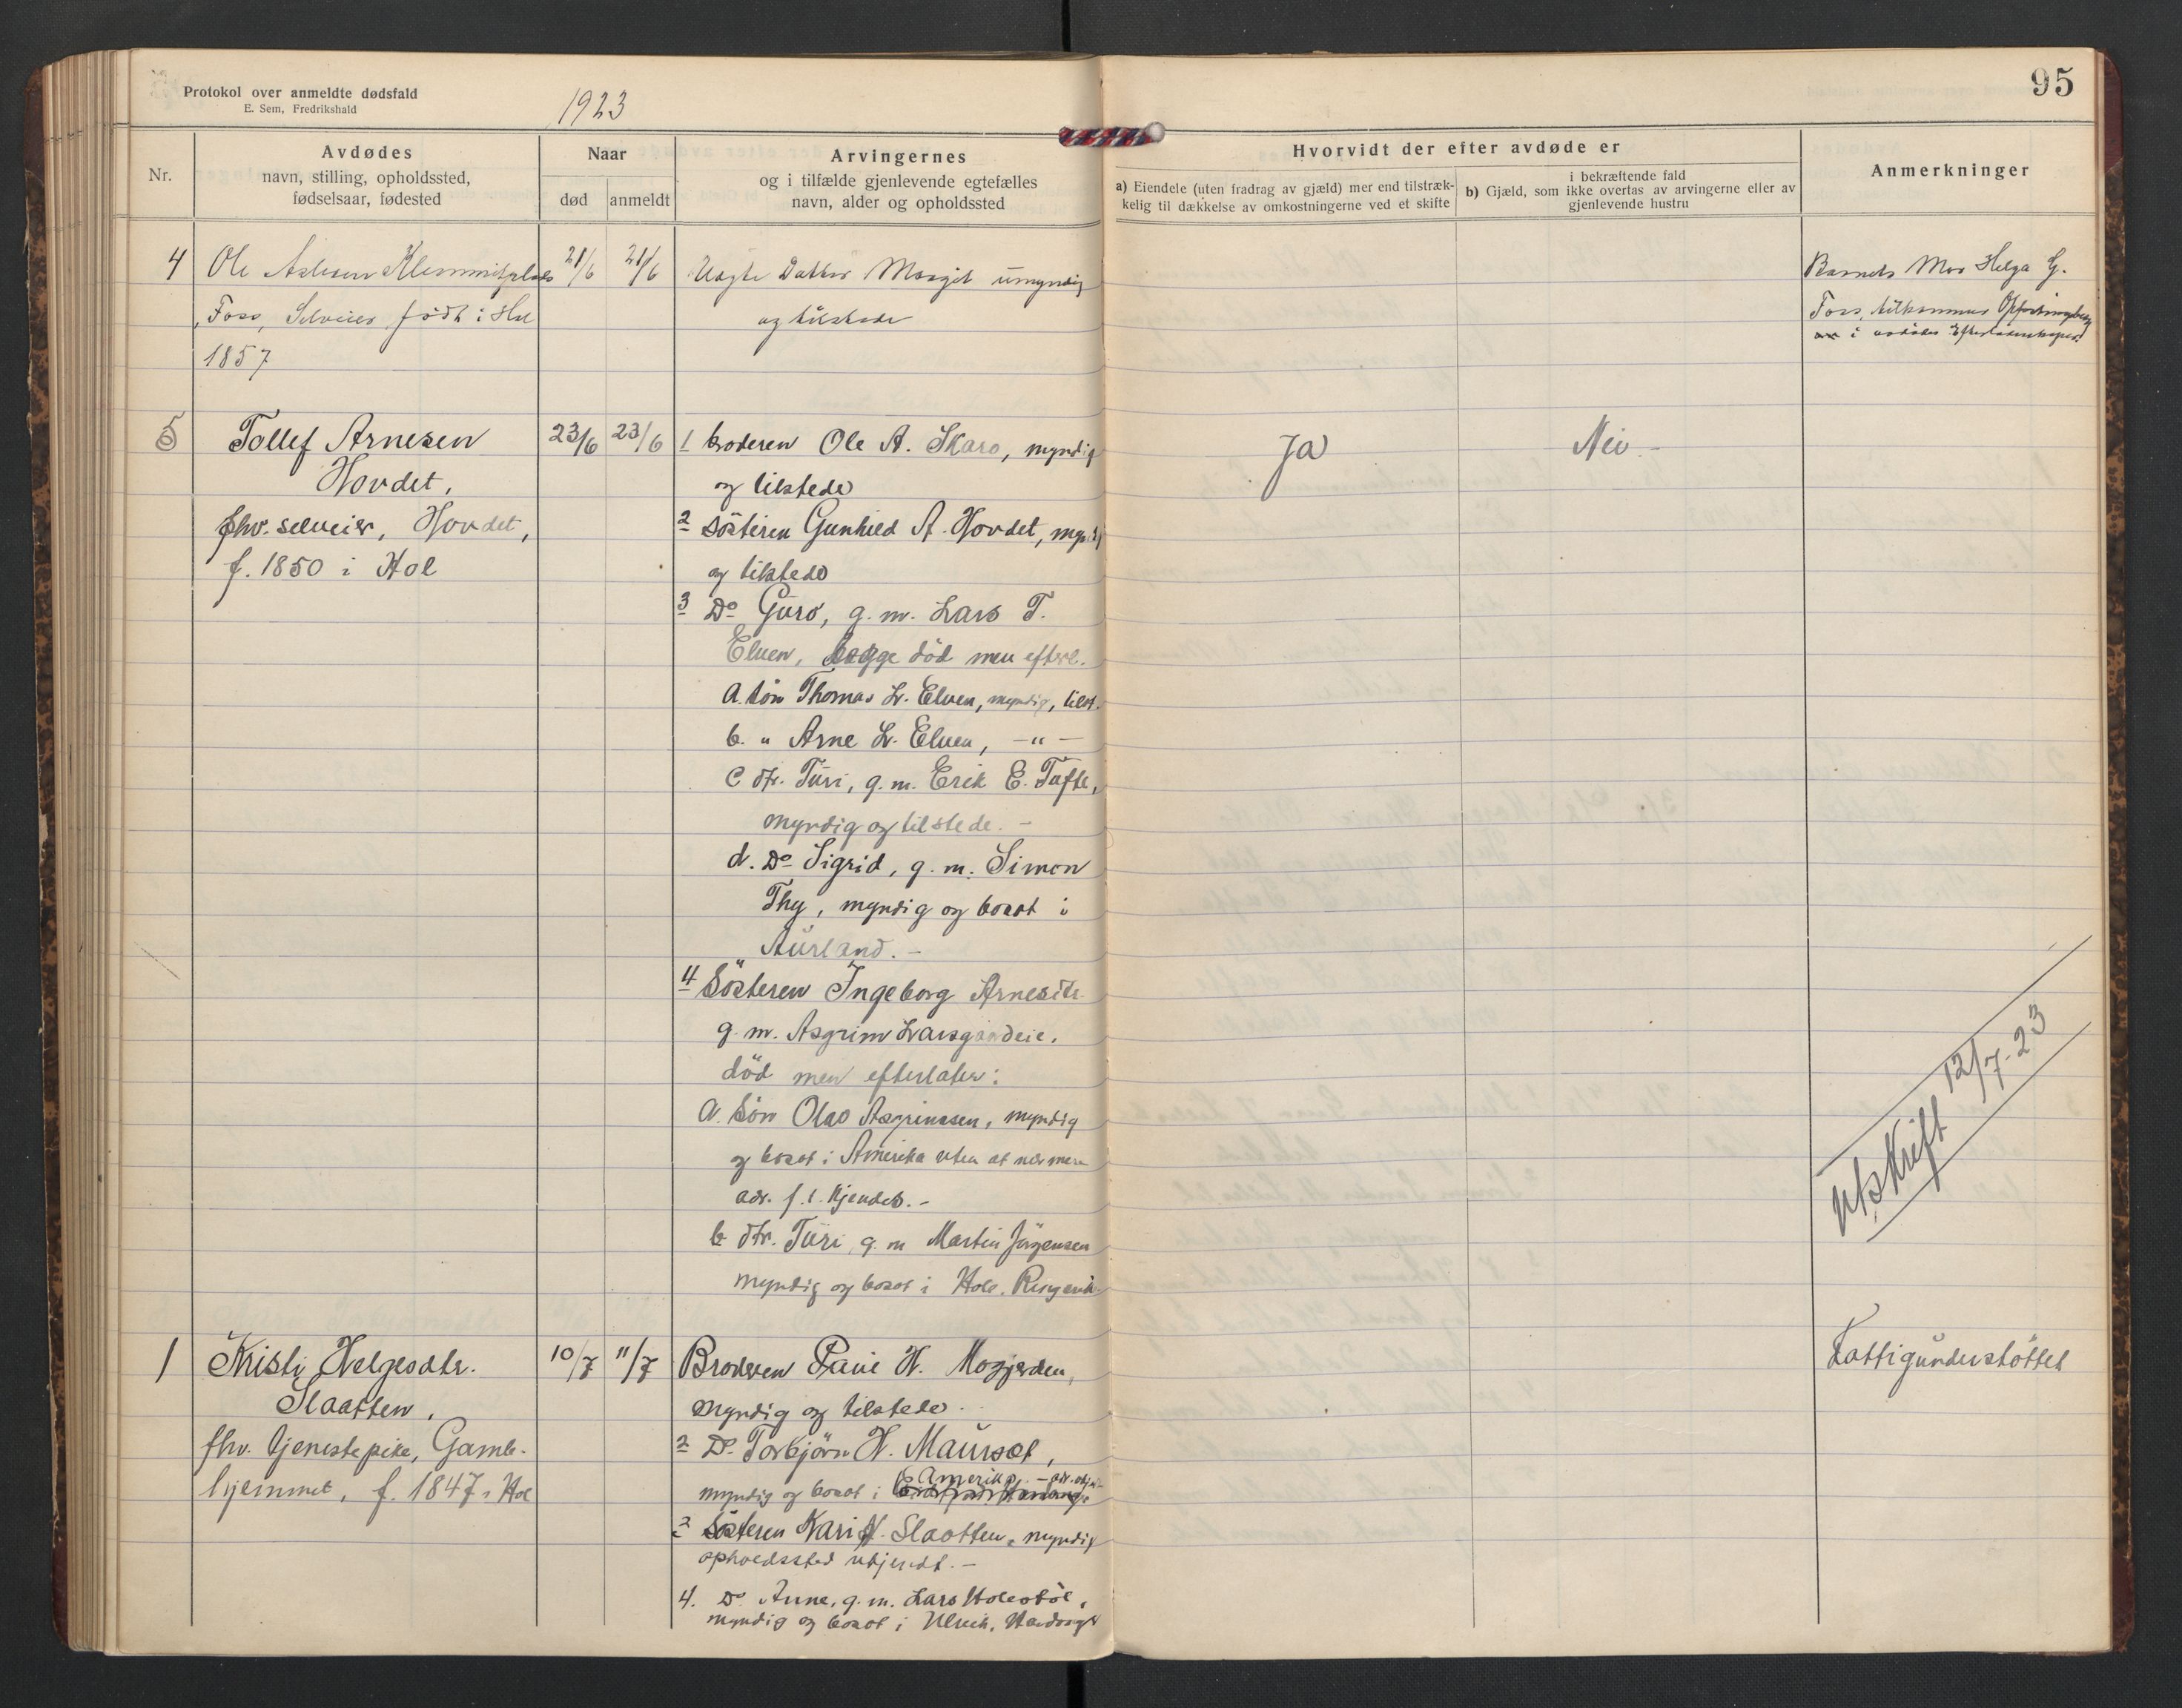 95
Protokol over anmeldte dødsfald
E. Sem, Fredrikshald
1923
Nr.
Avdødes
navn, stilling, opholdssted,
fødselsaar, fødested
Naar
død
anmeldt
Arvingernes
og i tilfælde gjenlevende egtefælles
navn, alder og opholdssted
Hvorvidt der efter avdøde er
a) Eiendele (uten fradrag av gjæld) mer end tilstræk-
kelig til dækkelse av omkostningerne ved et skifte
i bekræftende fald
b) Gjæld, som ikke overtas av arvingerne eller av
gjenlevende hustru
Anmerkninger
4 Ole Aslesen 21/6 21/6 Uegte Datter Margit umyndig
Foss, Selveier født i Hol og tilstede
1857
Barnets Mor Helga G.
Foss, tilkommer
i avdødes Efterladenskaper.
5 Tollef Arnesen 23/6 23/6 1 broderen Ole A. Skaro, myndig Ja Nei -
Hovdet, og tilstede
fhv. selveier, Hovdet, 2 Søsteren Gunhild A. Hovdet, myndig
f. 1850 i Hol og tilstede
3 Do Guro, g. m. Lars T.
Elven, begge död men efterl.
a. søn Thomas L. Elven, myndig, tilst.
b. " Arne L. Elven, -"-
c dtr. Türi, g. m. Erik E. Tufte,
myndig og tilstede. -
d. Do Sigrid, g. m. Simon
Thy, myndig og bosat i
Aürland. -
4 Søsteren Ingeborg Arnesdtr.
g. m. Asgrim Larsgardeie,
död men efterlater:
a. Søn Olav Asgrimssen, myndig
og bosat i Amerika uten at nærmere
adr. f. t. kjendes. -
b dtr. Türi, g. m Martin Jörgensen
myndig og bosat i Hole, Ringerik.
Utskrift 12/7-23
1 Kristi Helgesdtr. 10/7 11/7 Broderen Paul H. Mogjerden,
Slaatten, myndig og tilstede.
fhv. tjenestepike, Gamle- 2 Do Torbjörn H. Maurset,
hjemmet, f. 1847 i Hol myndig og bosat i Amerika - adr.
3 Søsteren Kari H. Slaatten, myndig
opholdssted ukjendt. -
4. Do Anne, g. m. Lars Holestöl,
myndig og bosat i Ulvik, Hardanger
Fattigünderstöttet